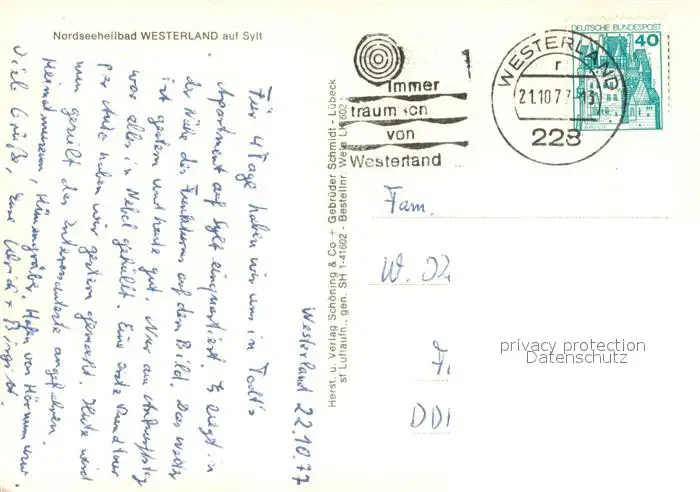 Nordseeheilbad WESTERLAND auf Sylt
Westerland 22.10.77
Für 4 Tage haben wir uns in Todt's
Apartment auf Sylt einquartiert. Es liegt in
der Nähe des Funkturms auf dem Bild. Das Wetter
ist gestern und heute gut. Nur am Ankunftstag
war alles in Nebel gehüllt. Eine erste Rundtour
per Auto haben wir gestern gemacht. Heute wird
nun gezielt das Interessanteste angefahren.
Heimatmuseum, Hünengräber, Hafen von Hörnum usw.
Viele Grüße, Eure Ulrich + Birgit.
Herst. u. Verlag Schöning & Co + Gebrüder Schmidt - Lübeck
st Luftaufn., gen. SH 1-41602 - Bestellnr. Wela
Immer
traum ich
von
Westerland
WESTERLAND
r
21.10.77
13
228
DEUTSCHE BUNDESPOST
40
Fam.
W.
DD
privacy protection
Datenschutz